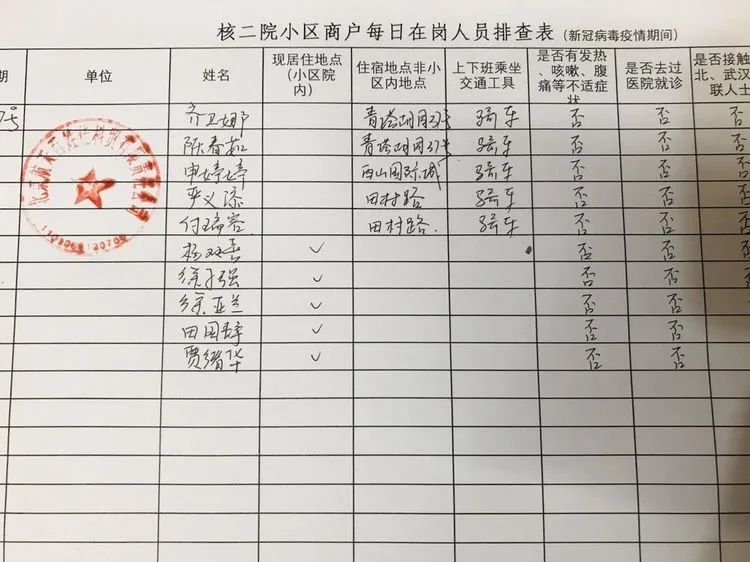 核二院小区商户每日在岗人员排查表(新冠病毒疫情期间)
期 单位 姓名 现居住地点(小区院内) 住宿地点非小区内地点 上下班乘坐交通工具 是否有发热、咳嗽、腹痛等不适症状 是否去过医院就诊 是否接触 北、武汉 联人士
齐卫娜 骑车 否 否 否
陈春茹 骑车 否 否 否
申婷婷 西山国际城 骑车 否 否 否
严义琼 田村路 骑车 否 否 否
付瑞容 田村路 骑车 否 否
杨双喜 ✓ 否 否
徐子强 ✓ 否 否
徐亚兰 ✓ 否 否
田国 ✓ 否 否
贾绪华 ✓ 否 否